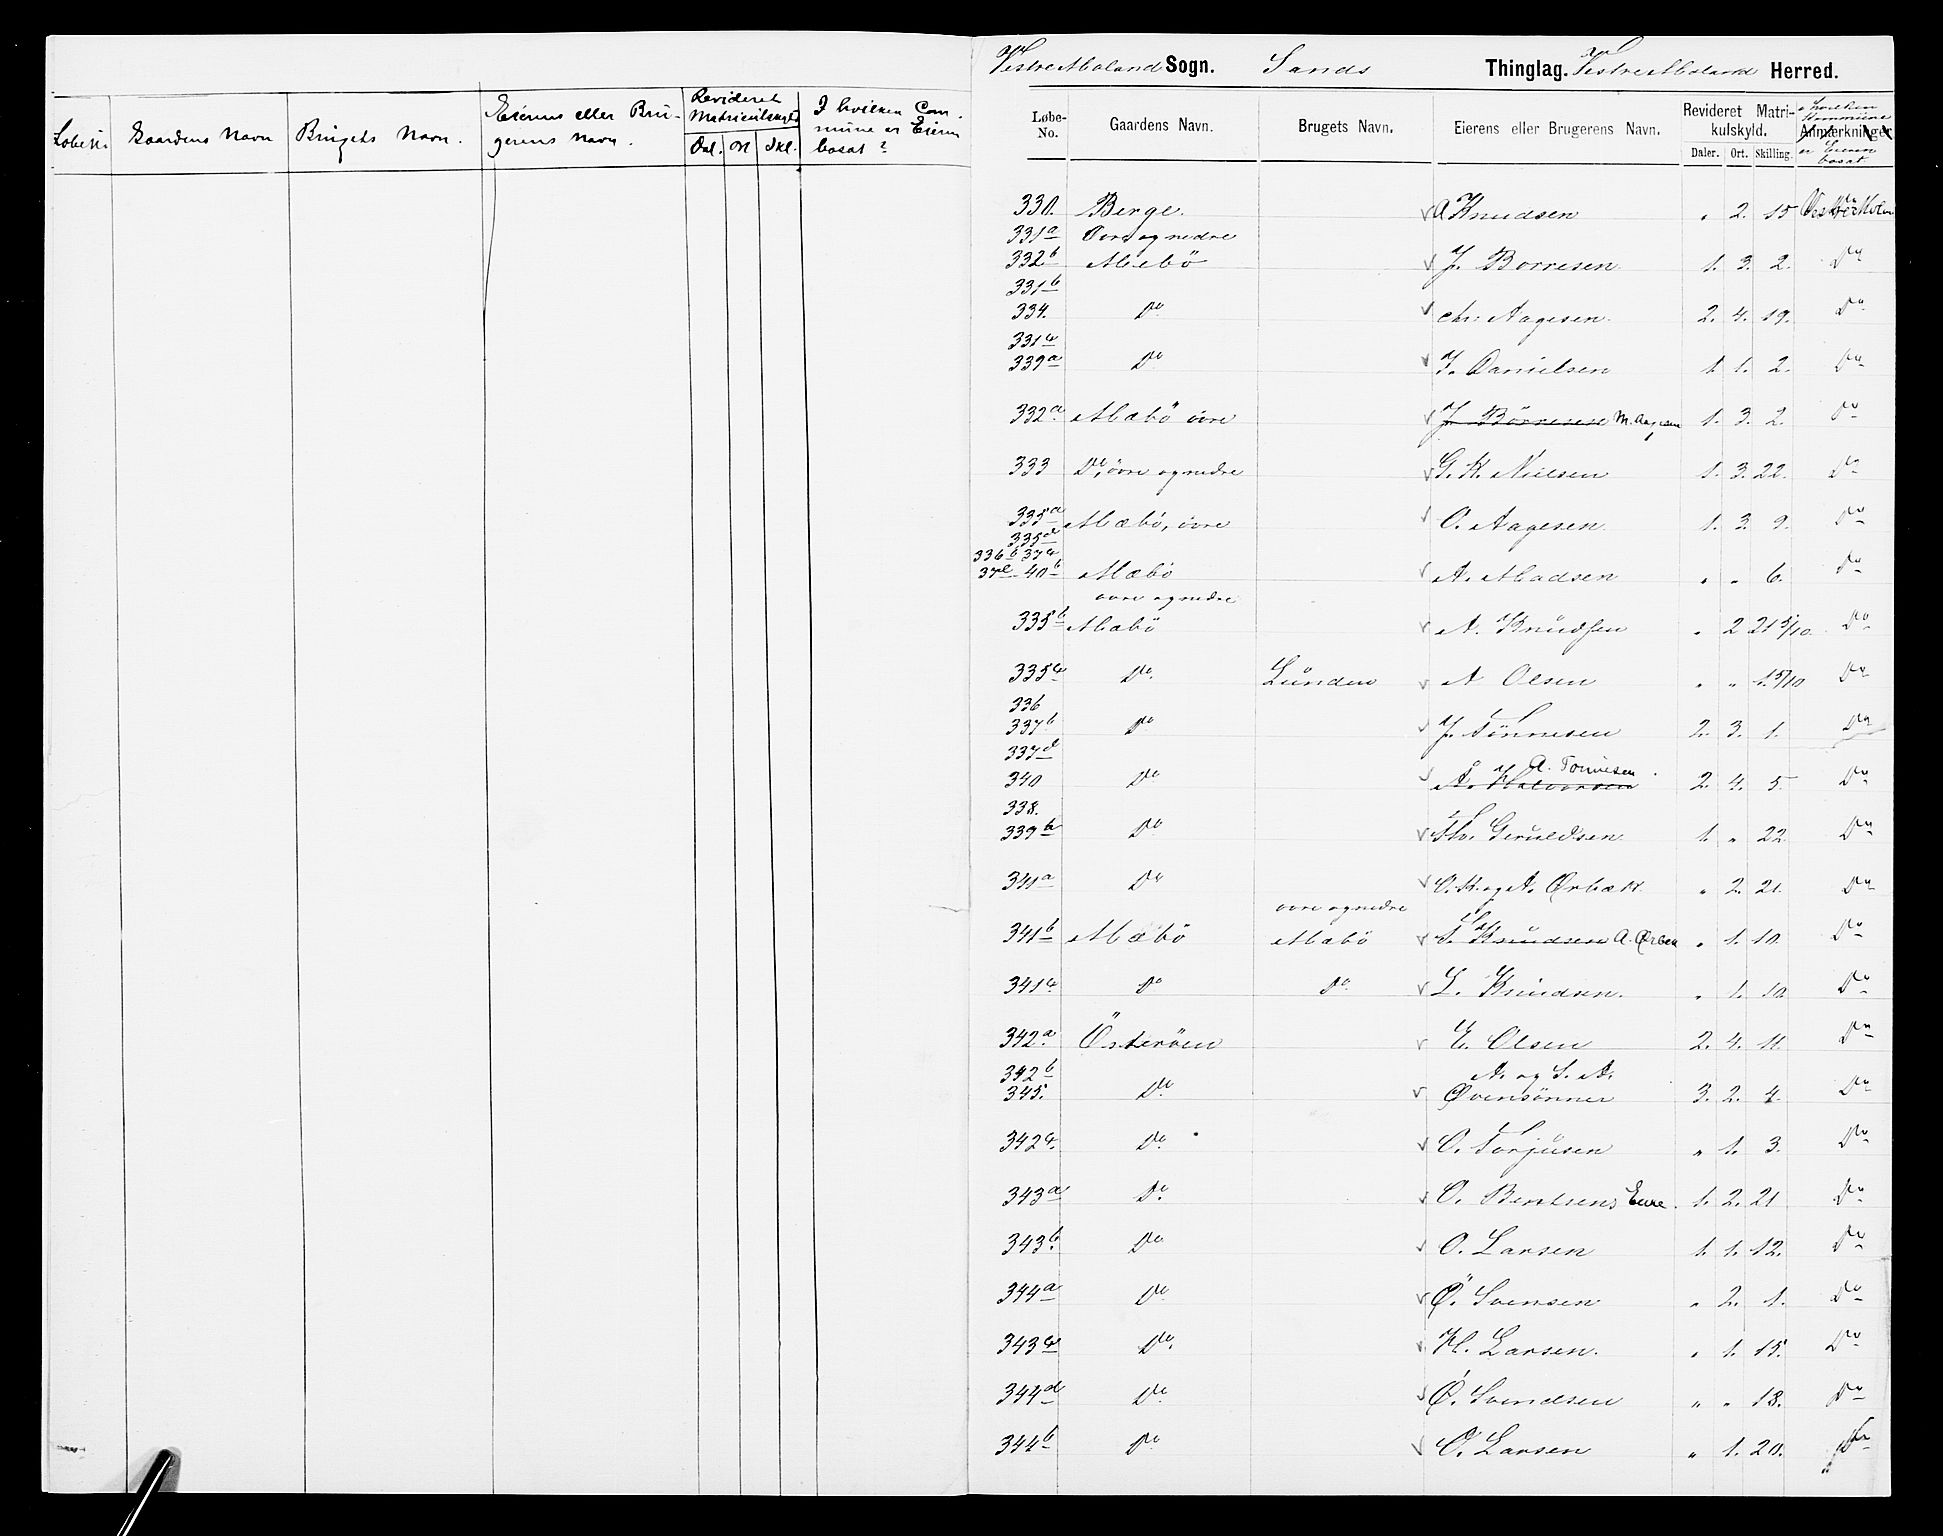 Løbe No Gaardens Navn Brugets Navn. Eierens eller Bru-
gerens Navn.
Revideret
Matriculskyld
Dal. Ort Skl.
I hvilken Com-
mune er Eieren
bosat?
Vestre Moland Sogn. Sands Thinglag. Vestre Moland Herred.
Løbe-No. Gaardens Navn. Brugets Navn. Eierens eller Brugerens Navn. Revideret Matri-kulskyld. Daler. Ort. Skilling. Anmærkninger i hvilken Kommune er Eieren bosat.
330. Berge. A Knudsen " 2. 15
331a Øvre og nedre
332b Mæbö J. Borresen 1. 3. 2. Do
331b
334. Do Chr. Aagesen 2. 4. 19. Do
331c
339a Do J. Danielsen 1. 1. 2. Do
332a Mæbö övre J. Börresen M. Aagesen 1. 3. 2. Do
333 Do, övre og nedre G. K. Nielsen 1. 3. 22. Do
335a Mæbö, övre O. Aagesen 1. 3. 9. Do
335d
336b 37c
37e 40b Mæbö A. Madsen " " 6. Do
övre og nedre
335b Mæbö A. Knudsen " 2 21 5/10 Do
335c Do. Lunden A Olsen " " 1. 5/10 Do
336
337b Do J. Tönnesen 2. 3. 1. Do
337d A. Tönnesen
340 Do A. Halvorsen 2. 4. 5 Do
338.
339b Do Th. Geruldsen 1. " 22 Do
341a Do O. K. og A. Ørbæk. " 2. 21. Do
övre og nedre
341b Mæbö Mæbö S. Knudsen A. Ørbæk " 1. 10. Do
341c Do Do. L. Knudsen. " 1. 10 Do
342a Österöen E. Olsen 2. 4. 11. Do
342b A. og S. A.
345. Do. Svensönner 3. 2. 4. Do
342c. Do. O. Torjusen " 1. 3. Do
343a Do. O. Bentsens Enke. 1. 2. 21 Do
343b. Do O. Larsen 1. 1. 12. Do
344a Do Ö. Svensen " 2. 1. Do
343c Do. H. Larsen. " 1. 15. Do
344d Do Ö. Svendsen " " 18. Do
344b Do O. Larsen " 1. 20. Do